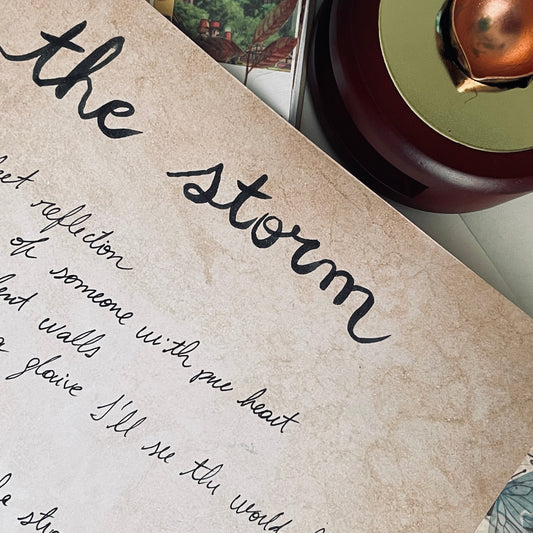 the storm
reflection
of someone with pure heart
walls
glaive I'll see the world
a